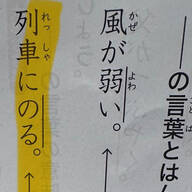 こと ば
――の言葉とは
かぜ よわ
風が弱い。↑
れっ しゃ
列車にのる。↑